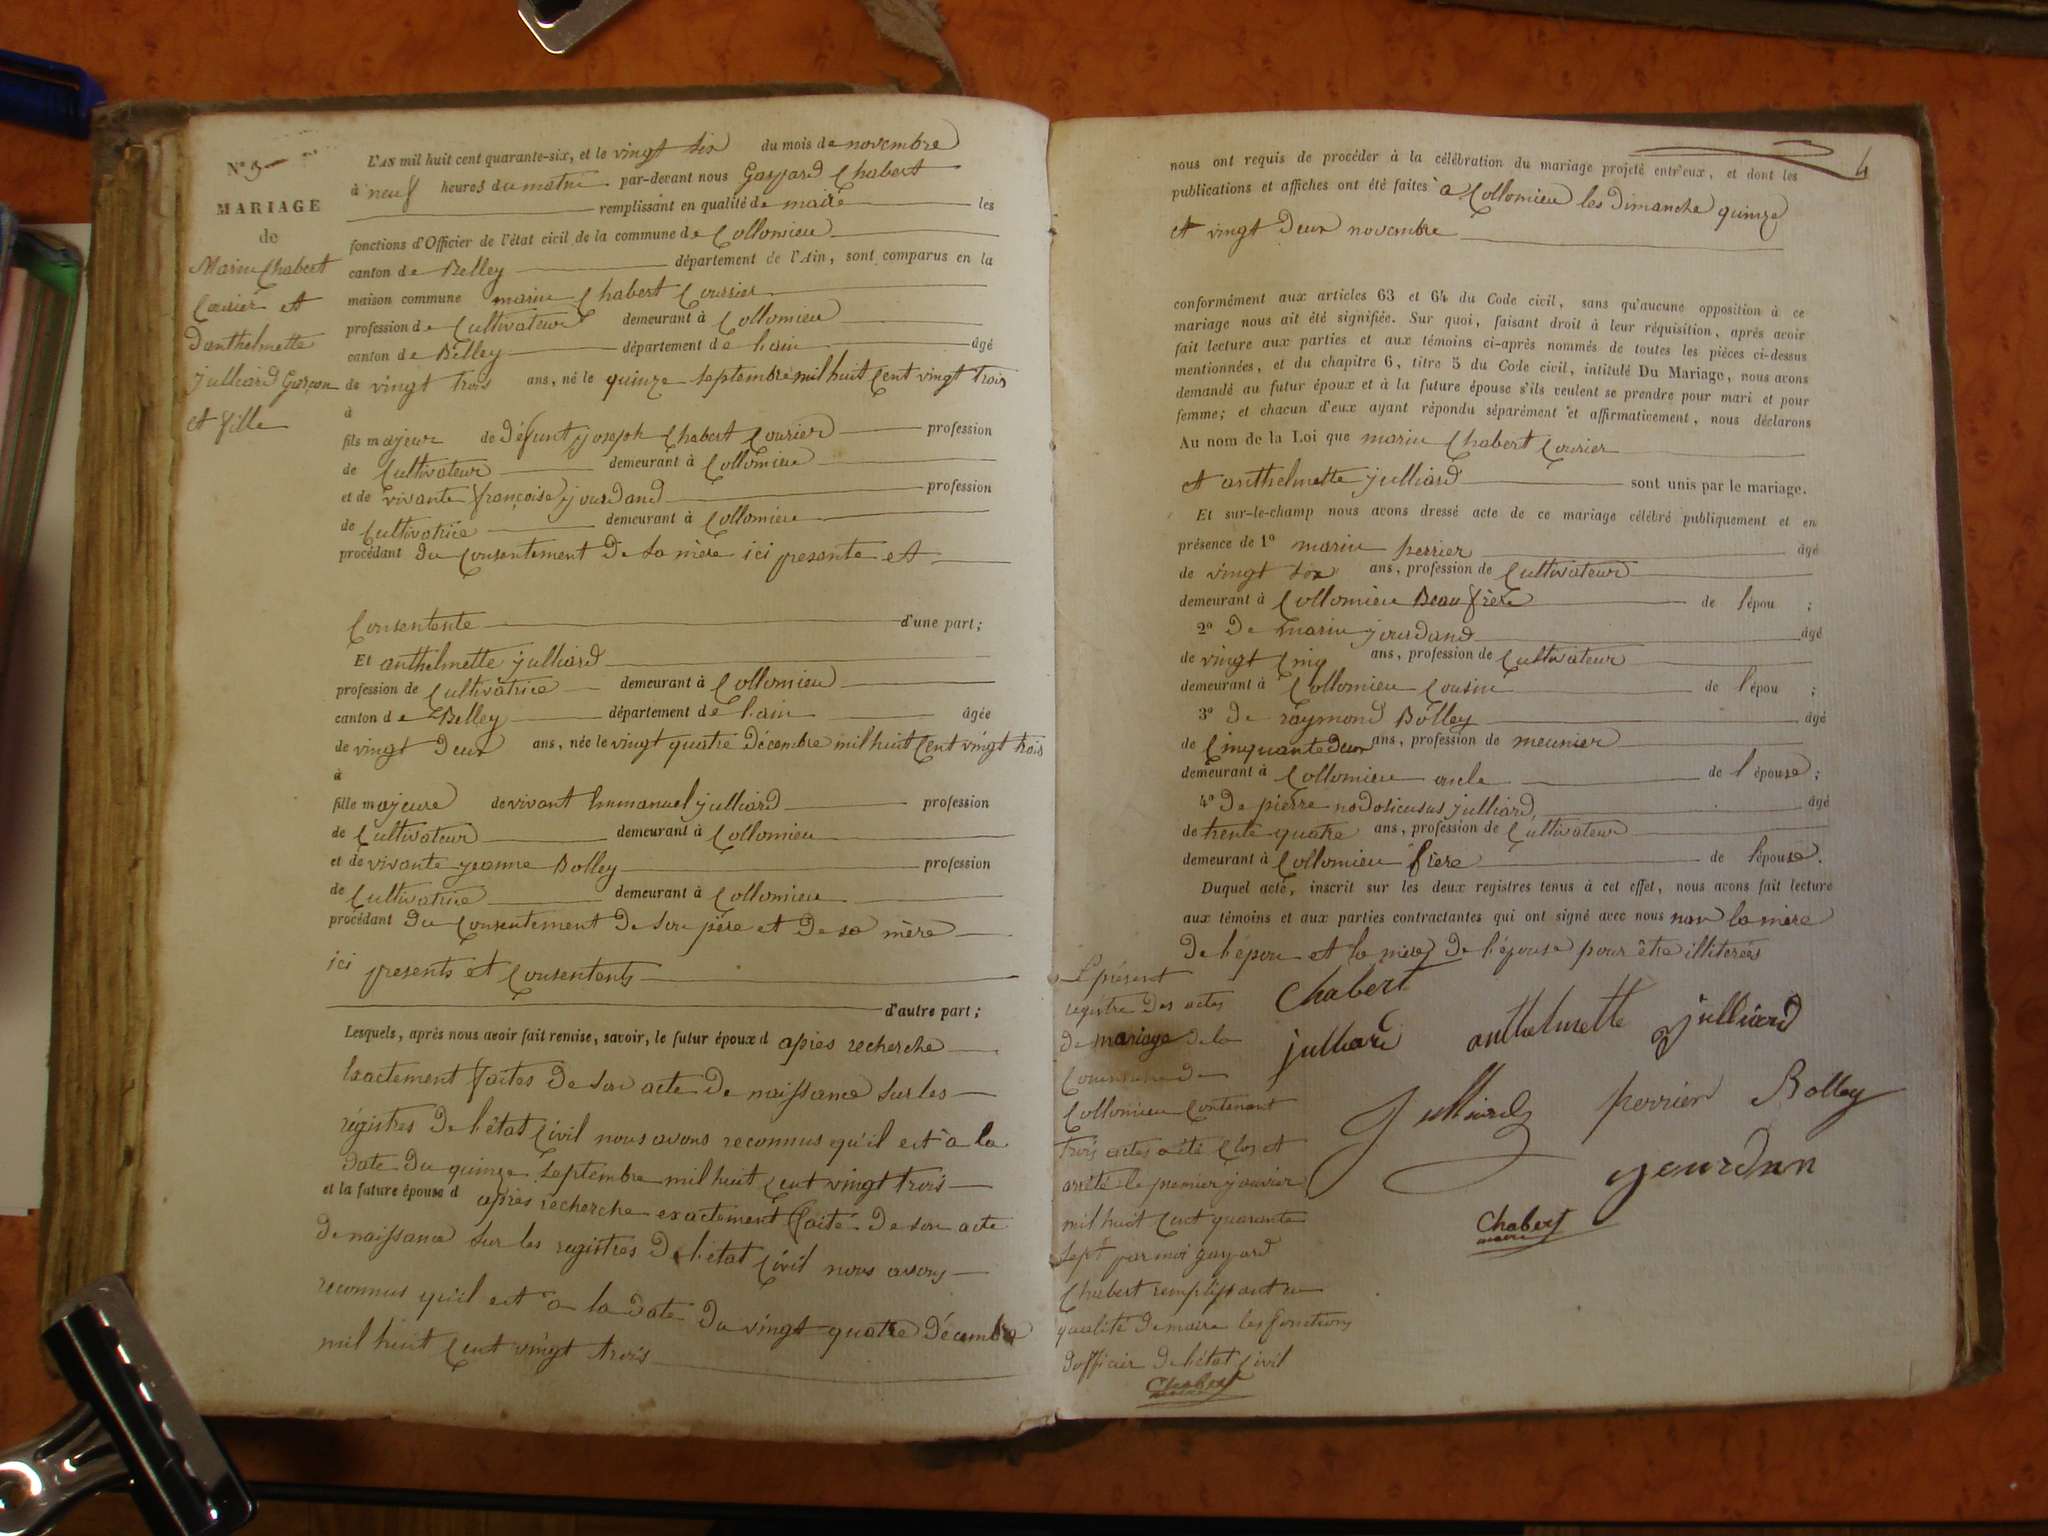 N° 3
MARIAGE
de
Marin Chabert
Courier et
Danthelmette
julliard Garçon
et fille
L'AN mil huit cent quarante-six, et le vingt six du mois de novembre
à neuf heures du matin par-devant nous Gaspard Chabert
remplissant en qualité de maire les
fonctions d'Officier de l'état civil de la commune de Collomieu
canton de Belley département de l'Ain, sont comparus en la
maison commune marin Chabert Courier
profession de Cultivateur demeurant à Collomieu
canton de Belley département de Lain âgé
de vingt trois ans, né le quinze septembre mil huit Cent vingt trois
à
fils majeur de Défunt joseph Chabert Courier profession
de Cultivateur demeurant à Collomieu
et de vivante françoise jourdand profession
de Cultivatrice demeurant à Collomieu
procédant du Consentement De sa mère ici presente et
Consentente d'une part;
Et anthelmette julliard
profession de Cultivatrice demeurant à Collomieu
canton de Belley département de Lain âgée
de vingt Deux ans, née le vingt quatre Décembre mil huit Cent vingt trois
à
fille majeure de vivant Emmanuel julliard profession
de Cultivateur demeurant à Collomieu
et de vivante jeanne Bolley profession
de Cultivatrice demeurant à Collomieu
procédant du Consentement De son père et De sa mère
ici presents et Consentents
d'autre part;
Lesquels, après nous avoir fait remise, savoir, le futur époux d après recherche
Exactement faites De son acte De naissance sur les
régistres De l'état Civil nous avons reconnus qu'il est à la
Date Du quinze septembre mil huit Cent vingt trois
et la future épouse d après recherche exactement faite De son acte
De naissance sur les registres De l'état Civil nous avons
reconnus qu'il est a la Date Du vingt quatre Décembre
mil huit Cent vingt trois
4
nous ont requis de procéder à la célébration du mariage projeté entr'eux, et dont les
publications et affiches ont été faites à Collomieu les Dimanche quinze
et vingt Deux novembre
conformément aux articles 63 et 64 du Code civil, sans qu'aucune opposition à ce
mariage nous ait été signifiée. Sur quoi, faisant droit à leur réquisition, après avoir
fait lecture aux parties et aux témoins ci-après nommés de toutes les pièces ci-dessus
mentionnées, et du chapitre 6, titre 5 du Code civil, intitulé Du Mariage, nous avons
demandé au futur époux et à la future épouse s'ils veulent se prendre pour mari et pour
femme; et chacun d'eux ayant répondu séparément et affirmativement, nous déclarons
Au nom de la Loi que marin Chabert Courier
et anthelmette julliard sont unis par le mariage.
Et sur-le-champ nous avons dressé acte de ce mariage célébré publiquement et en
présence de 1° marin perrier âgé
de vingt six ans, profession de Cultivateur
demeurant à Collomieu Beau frère de l'épou ;
2° De marin jourdand âgé
de vingt Cinq ans, profession de Cultivateur
demeurant à Collomieu Cousin de l'épou ;
3° De raymond Bolley âgé
de Cinquante deux ans, profession de meunier
demeurant à Collomieu oncle de l'épouse;
4° De pierre julliard âgé
de trente quatre ans, profession de Cultivateur
demeurant à Collomieu frère de l'épouse.
Duquel acte, inscrit sur les deux registres tenus à cet effet, nous avons fait lecture
aux témoins et aux parties contractantes qui ont signé avec nous non la mère
De l'épou et la mère De l'épouse pour être illiterées
Chabert
julliard anthelmette julliard
Julliard perrier Bolley
jourdan
Chabert
maire
Le présent
registre Des actes
De mariage De la
Commune De
Collomieu Contenant
trois actes a été Clos et
arrêté le premier janvier
mil huit Cent quarante
sept par moi gaspard
Chabert remplissant en
qualité De maire les fonctions
d'officier De l'état Civil
Chabert
maire